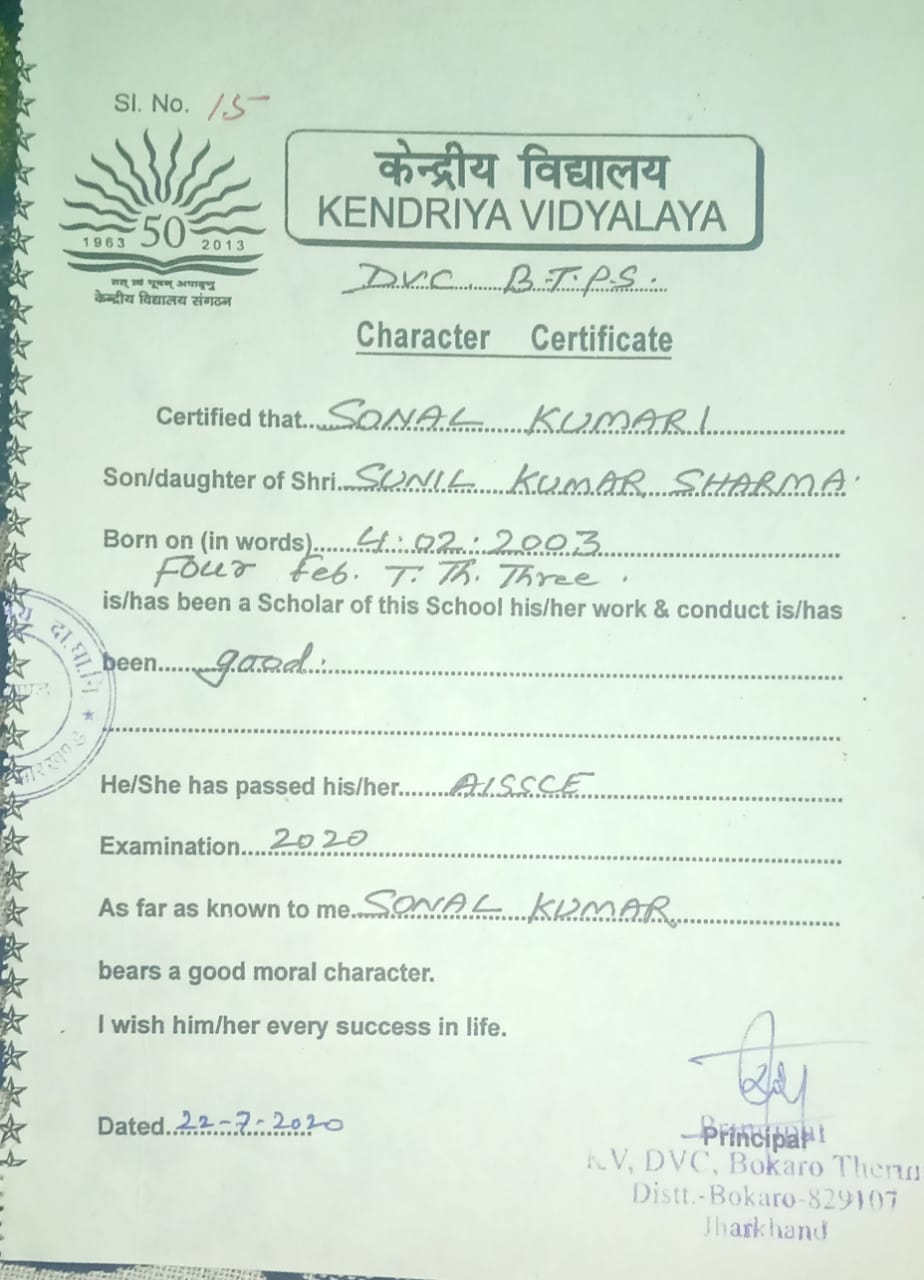 Sl. No. 15
केन्द्रीय विद्यालय
KENDRIYA VIDYALAYA
1963 50 2013
तत् त्वं पूषन् अपावृणु
केन्द्रीय विद्यालय संगठन
DVC B.T.P.S.
Character Certificate
Certified that SONAL KUMARI
Son/daughter of Shri SUNIL KUMAR SHARMA
Born on (in words) 4.02.2003
Four Feb. T. Th. Three.
is/has been a Scholar of this School his/her work & conduct is/has
been good.
He/She has passed his/her AISSCE
Examination 2020
As far as known to me SONAL KUMAR
bears a good moral character.
I wish him/her every success in life.
Dated 22-7-2020
Principal
Principal
KV, DVC, Bokaro Therm
Distt.-Bokaro-829107
Jharkhand